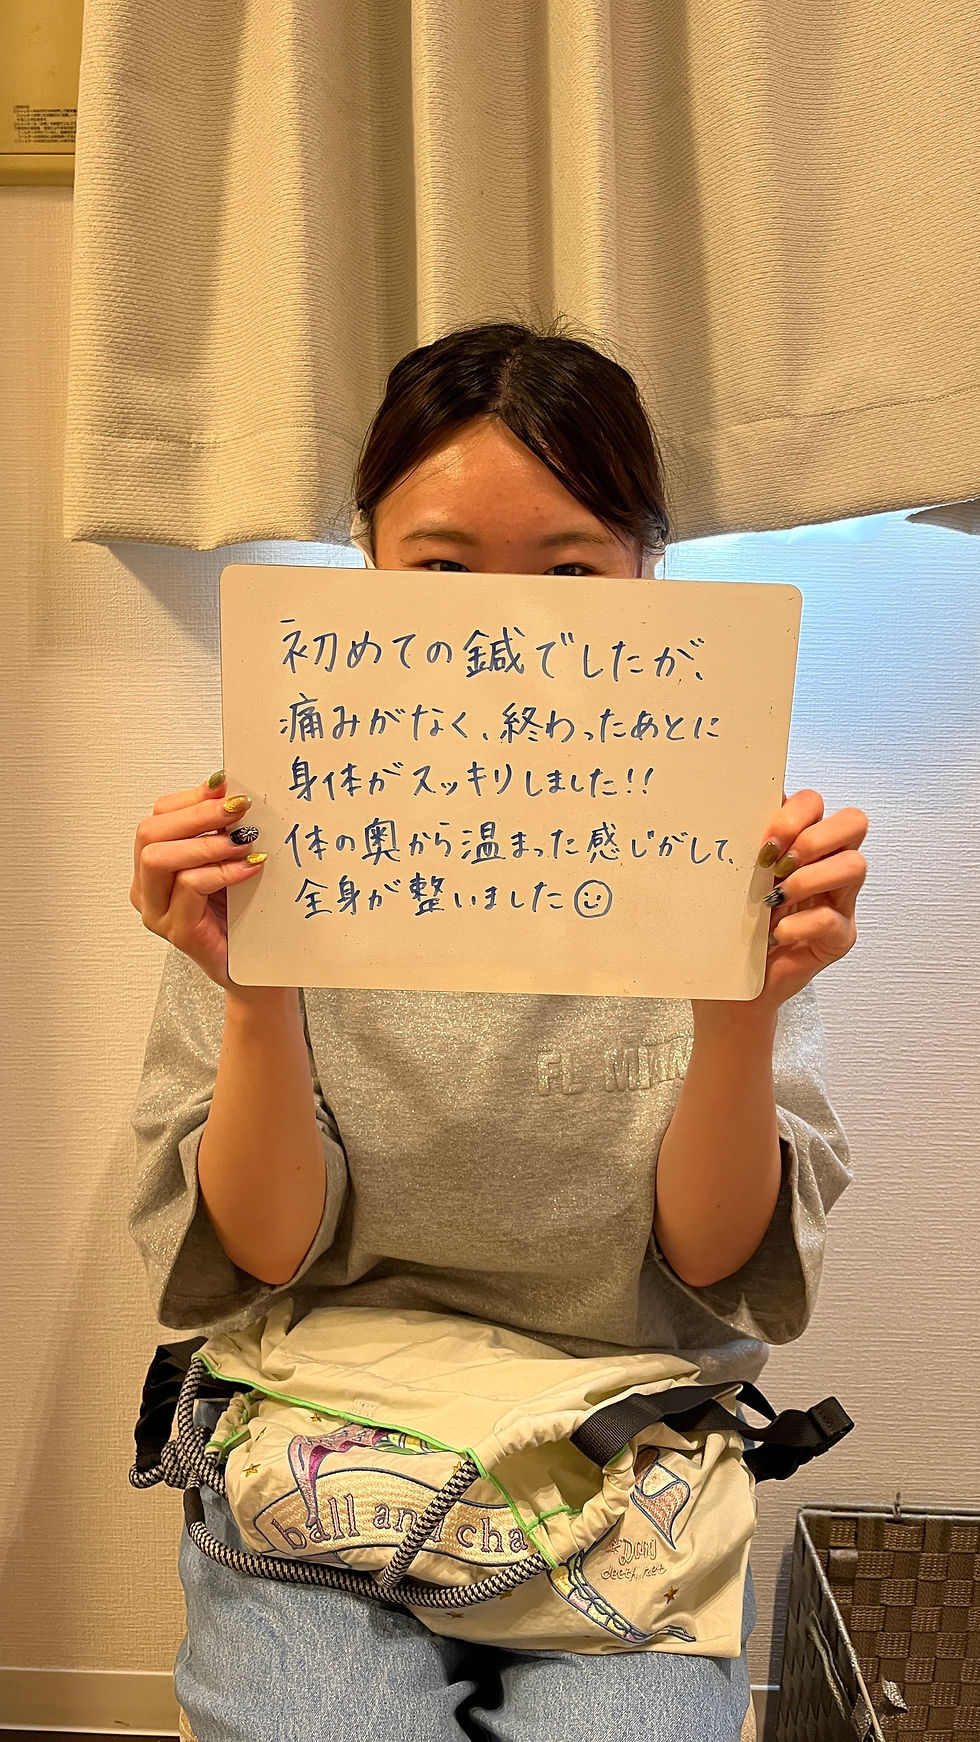 初めての鍼でしたが、
痛みがなく、終わったあとに
身体がスッキリしました!!
体の奥から温まった感じがして、
全身が整いました
ball and cha